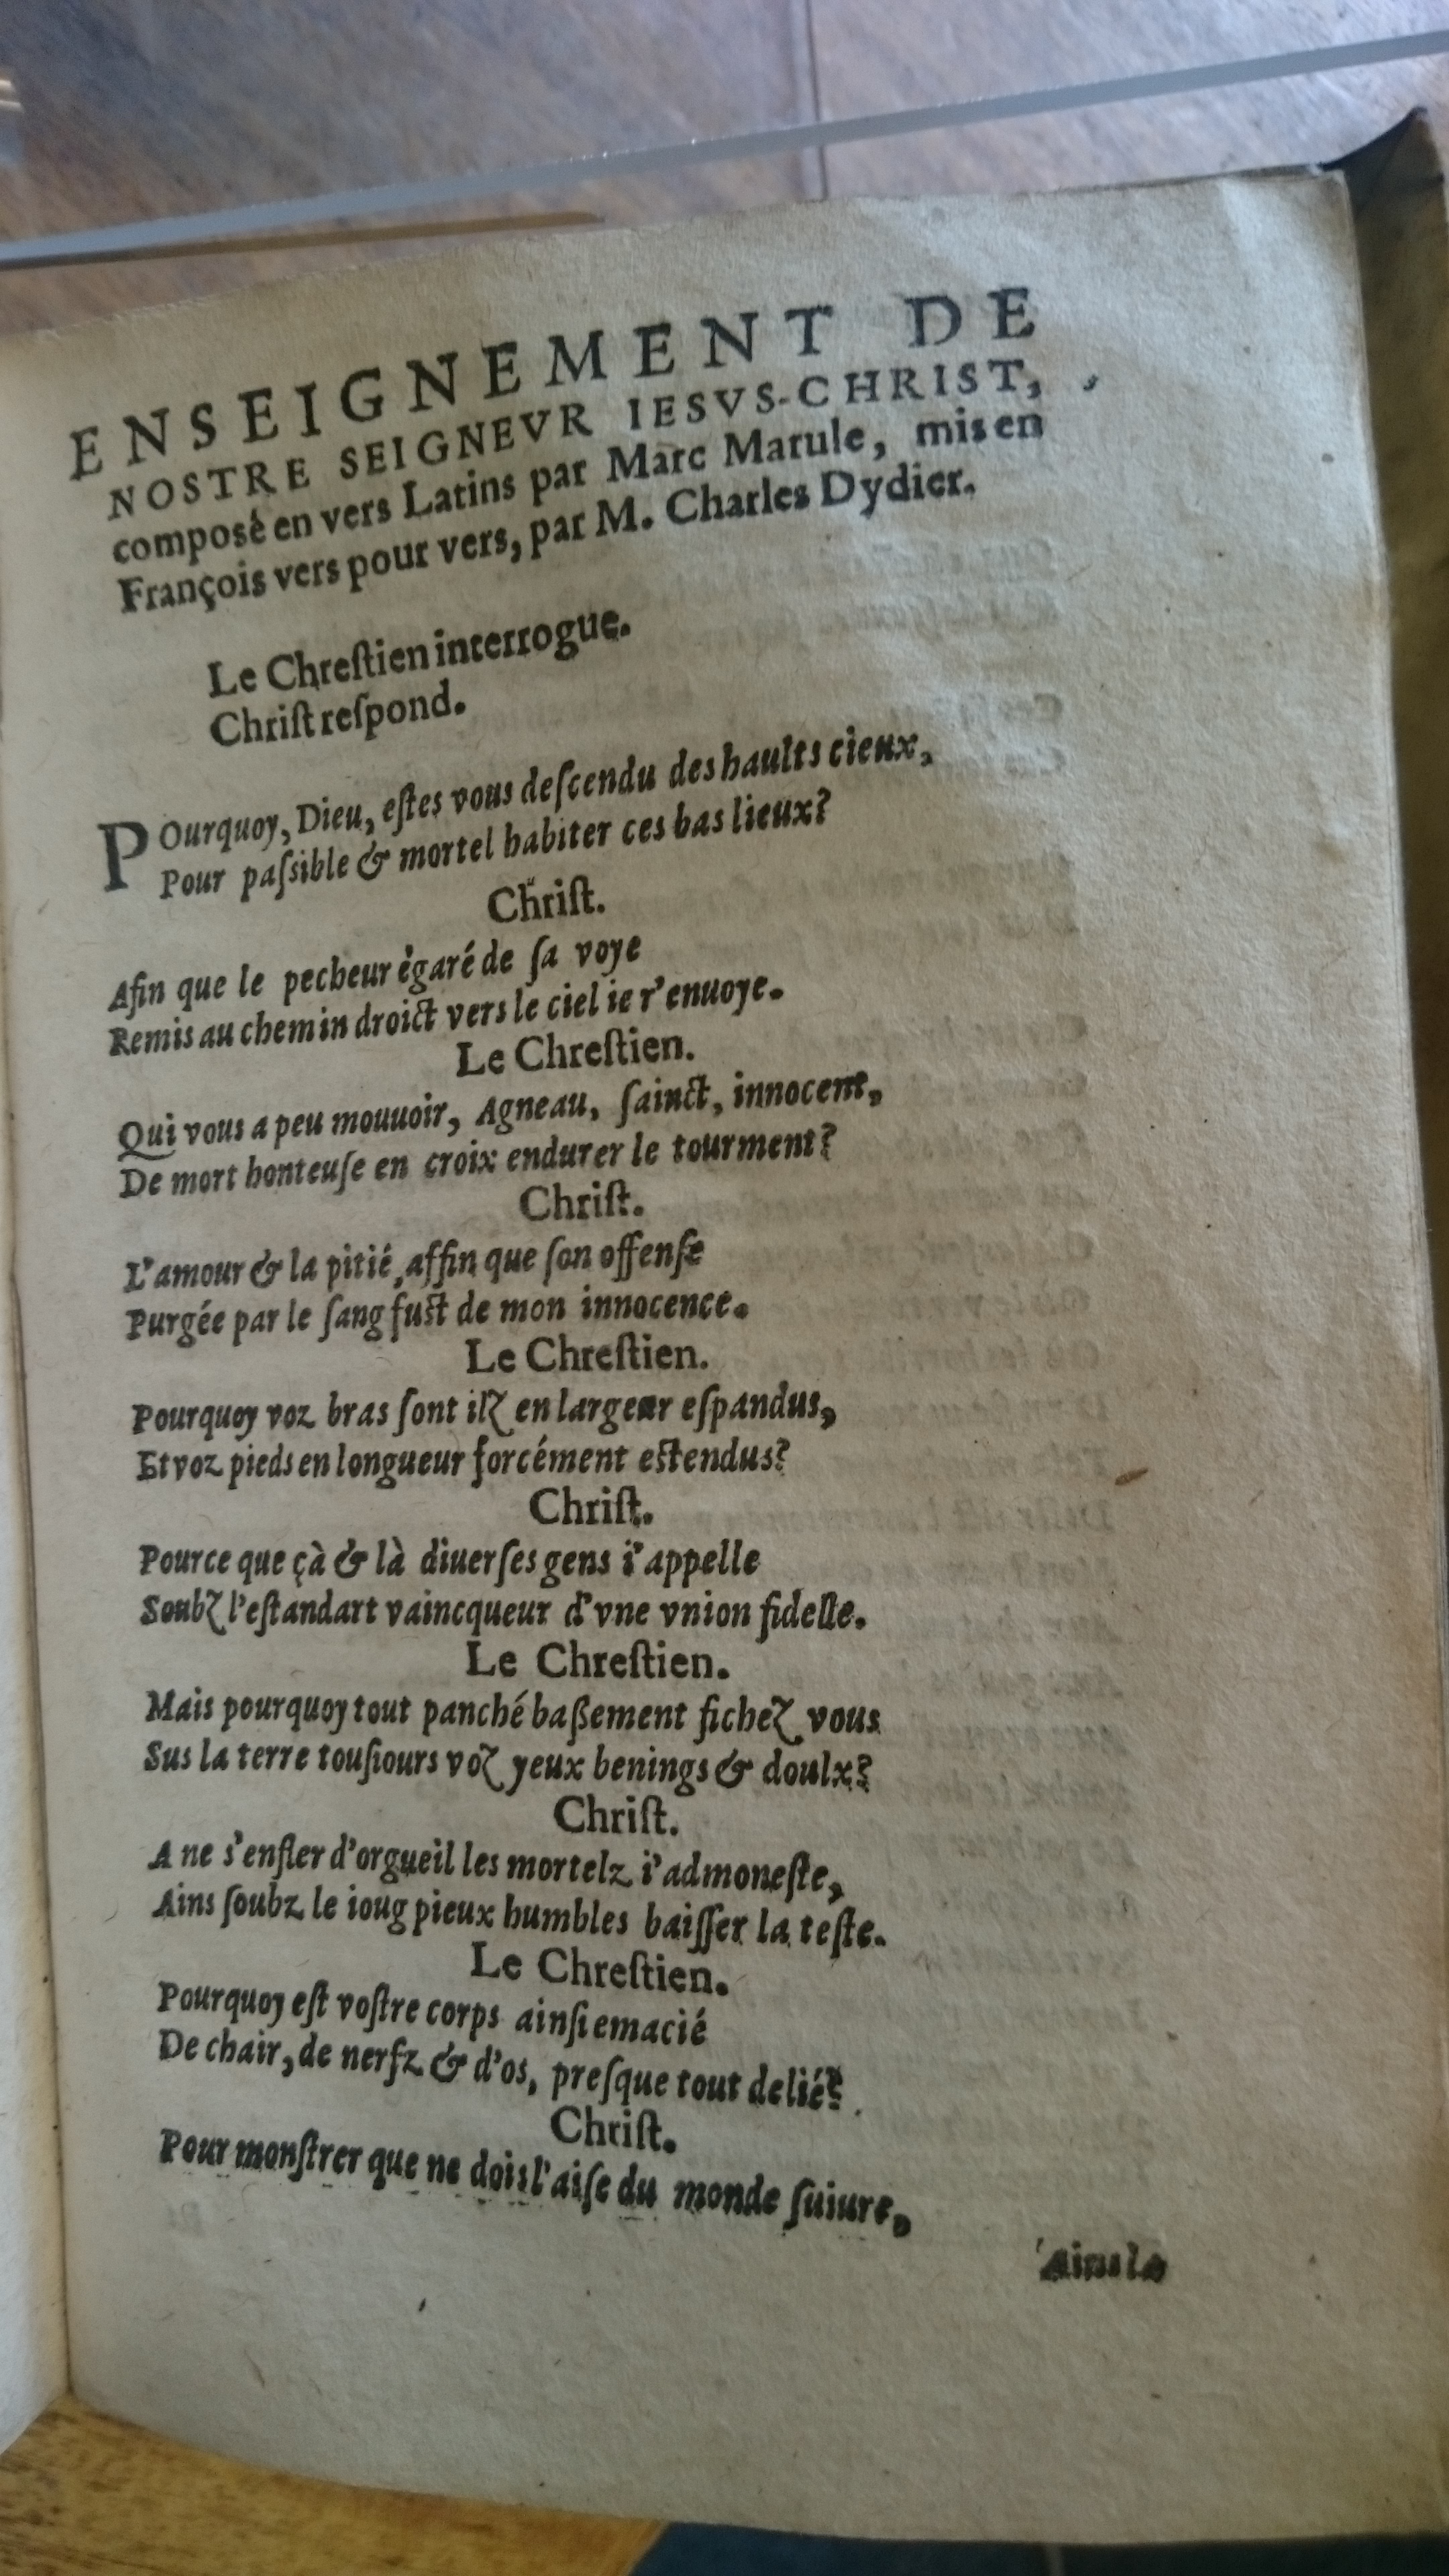 ENSEIGNEMENT DE
NOSTRE SEIGNEVR IESVS-CHRIST,
composé en vers Latins par Marc Marule, mis en
François vers pour vers, par M. Charles Dydier.
Le Chreſtien interrogue.
Chriſt reſpond.
POurquoy, Dieu, eſtes vous deſcendu des haults cieux,
Pour paſsible & mortel habiter ces bas lieux?
Chriſt.
Afin que le pecheur égaré de ſa voye
Remis au chemin droict vers le ciel ie r'enuoye.
Le Chreſtien.
Qui vous a peu mouuoir, Agneau, ſainct, innocent,
De mort honteuſe en croix endurer le tourment?
Chriſt.
L'amour & la pitié, affin que ſon offenſe
Purgée par le ſang fuſt de mon innocence.
Le Chreſtien.
Pourquoy voz bras ſont ilz en largeur eſpandus,
Et voz pieds en longueur forcément eſtendus?
Chriſt.
Pource que çà & là diuerſes gens i'appelle
Soubz l'eſtandart vaincqueur d'vne vnion fidelle.
Le Chreſtien.
Mais pourquoy tout panché baßement fichez vous
Sus la terre touſiours voz yeux benings & doulx?
Chriſt.
A ne s'enfler d'orgueil les mortelz i'admoneſte,
Ains ſoubz le ioug pieux humbles baiſſer la teſte.
Le Chreſtien.
Pourquoy eſt voſtre corps ainſi emacié
De chair, de nerfz & d'os, preſque tout delié?
Chriſt.
Pour monſtrer que ne dois l'aiſe du monde ſuiure,